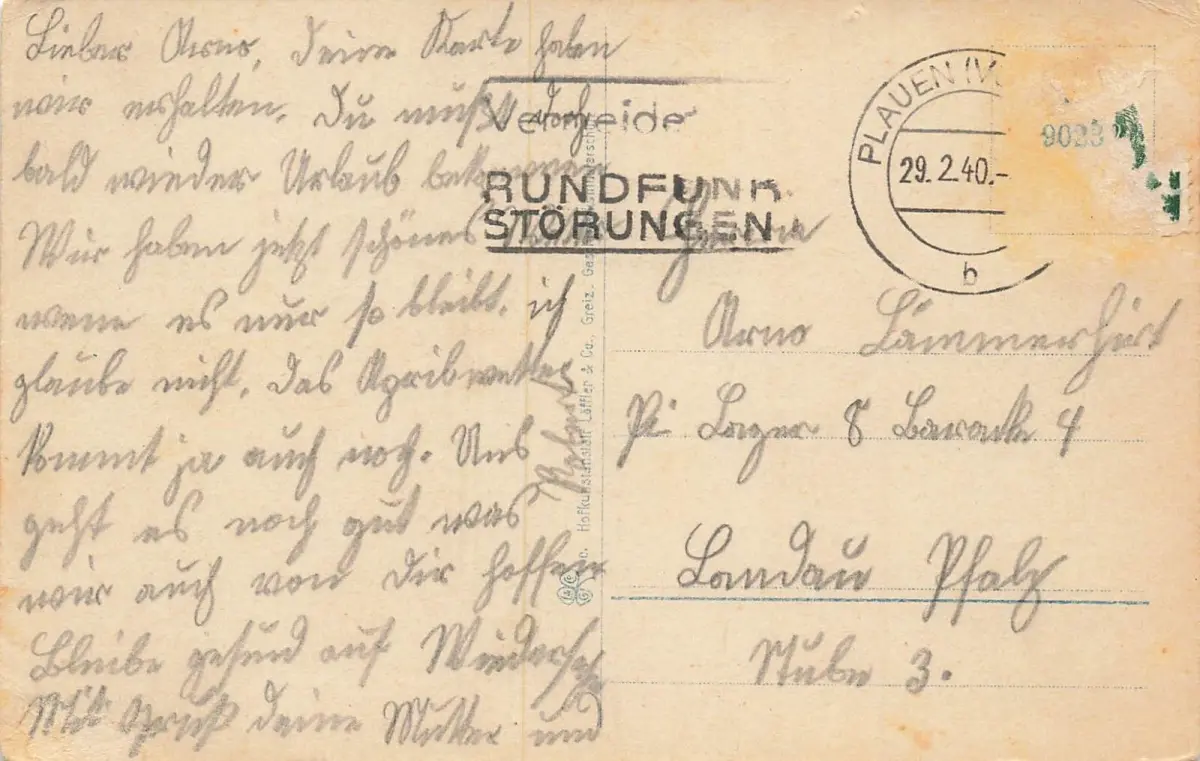 Lieber Arno, deine Karte haben
wir erhalten. Du mußt doch
bald wieder Urlaub bekommen
Wir haben jetzt schönes
wene es nur so bleibt, ich
glaube nicht, das Aprilwetter
kommt ja auch noch. Uns
geht es noch gut was
wir auch von dir hoffen
Bleibe gesund auf Wiedersehn
Mit Gruß deine Mutter und
Hofkunstanstalt Löffler & Co., Greiz.
Vermeide
RUNDFUNK
STÖRUNGEN
PLAUEN (V
29.2.40.-
b
9023
Arno Lämmerhirt
Lager 8 Baracke 4
Landau Pfalz
Stube 3.